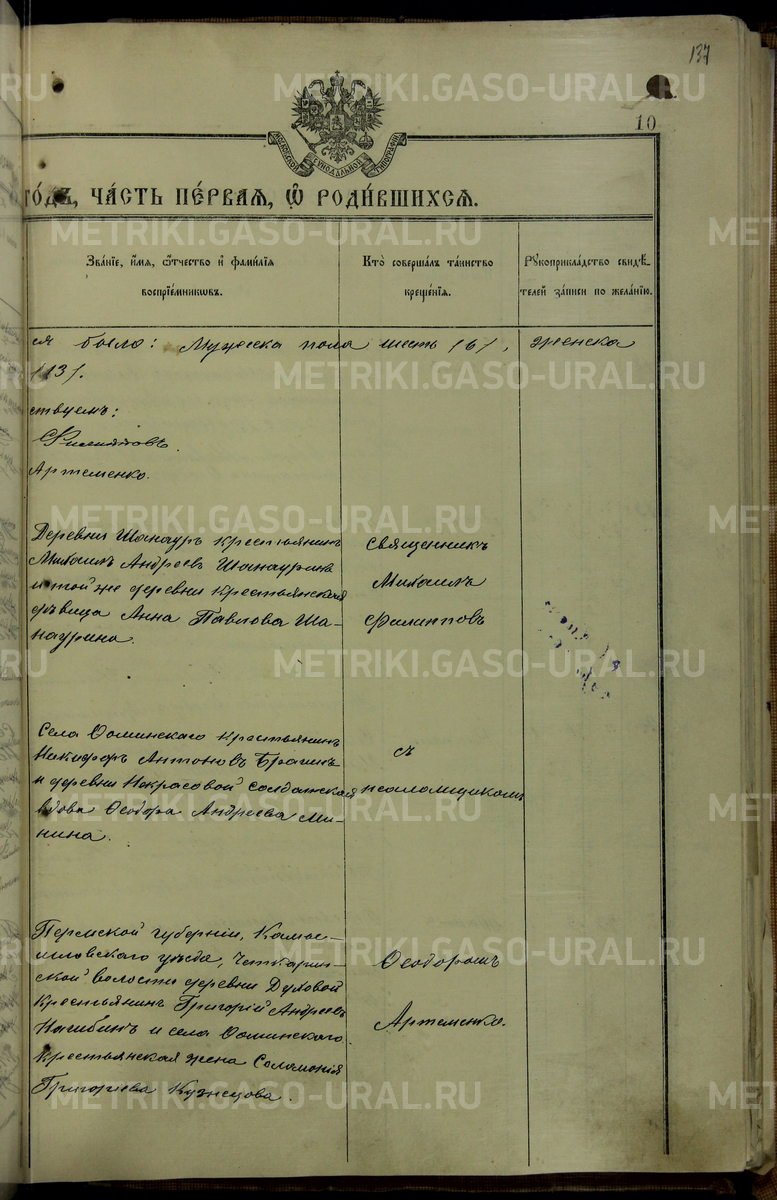 137
10
МОСКОВСКОЙ СИНОДАЛЬНОЙ ТИПОГРАФІИ
го́дъ, ча́сть пе́рвая, ѡ҆ роди́вшихсѧ.
Зва́нїе, и҆́мѧ, ѻ҆́тчество и҆ фами́лїѧ
воспрїе́мникѡвъ.
Кто̀ соверша́лъ та́инство
креще́нїѧ.
Рꙋкоприкла́дство свидѣ́-
телей за́писи по жела́нїю.
ся было: Мужеска пола шесть /6/, женска
/13/.
ствуемъ:
Филипповъ.
Артеменко.
Деревни Шанауръ крестьянинъ
Михаилъ Андреевъ Шанауринъ
и той же деревни крестьянская
дѣвица Анна Павлова Ша-
наурина.
Священникъ
Михаилъ
Филипповъ
Села Ѳоминскаго крестьянинъ
Никифоръ Антоновъ Брагинъ
и деревни Некрасовой солдатская
вдова Ѳеодора Андреева Ми-
нина.
съ
псаломщикомъ
Пермской губерніи, Камыш-
ловскаго уѣзда, Четкарин-
ской волости деревни Духовой
крестьянинъ Григорій Андреевъ
Нагибинъ и села Ѳоминскаго
крестьянская жена Соломонія
Григорьева Кузнецова.
Ѳеодоромъ
Артеменко.
METRIKI.GASO-URAL.RU